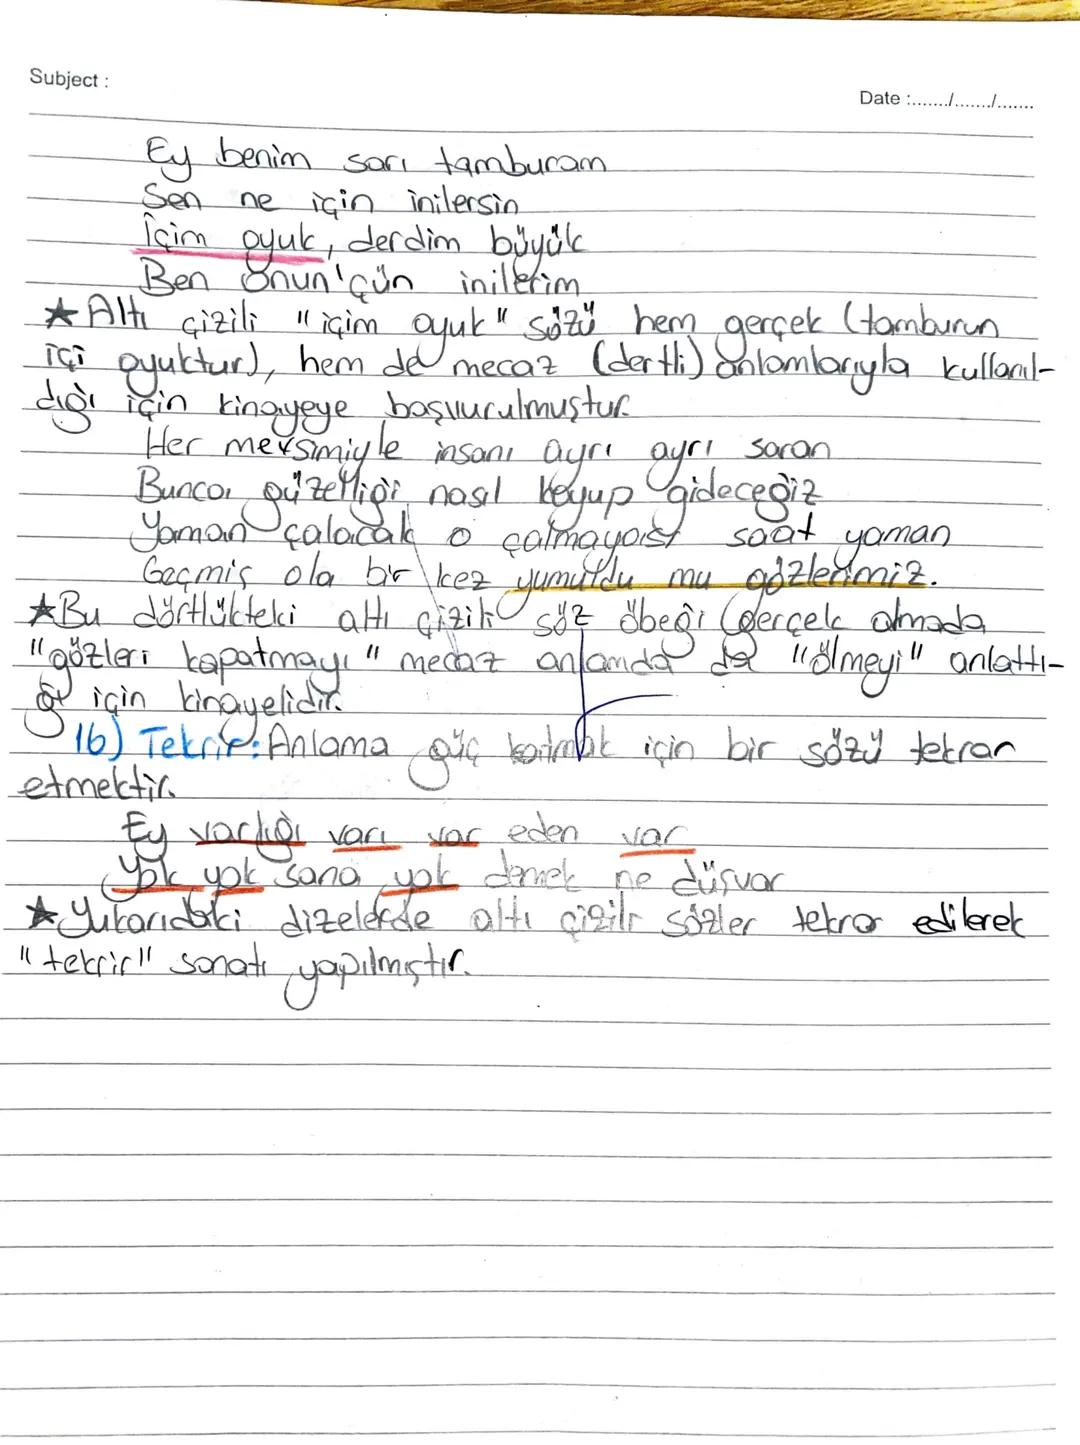 Subject :
Date :......./......./.......
Ey benim sarı tamburam
Sen ne için inilersin
İçim oyuk, derdim büyük
Ben onun'çün inilerim
★ Altı çizili "içim oyuk" sözü hem gerçek (tamburun
içi oyuktur), hem de mecaz (dertli) anlamlarıyla kullanıl-
dığı için kinayeye başvurulmuştur.
Her mevsimiyle insanı ayrı ayrı saran
Bunca güzelliği nasıl koyup gideceğiz
Yaman çalacak o çalmayası saat yaman
Geçmiş ola bir kez yumuldu mu gözlerimiz.
★ Bu dörtlükteki altı çizili söz öbeği (gerçek almada
"gözleri kapatmayı" mecaz anlamda da "ölmeyi" anlattı-
ğı için kinayelidir.
16) Tekrir: Anlama güç katmak için bir sözü tekrar
etmektir.
Ey varlığı varı var eden var
Yok yok sana yok demek ne düşvar
★ Yukarıdaki dizelerde altı çizili sözler tekrar edilerek
"tekrir" sanatı yapılmıştır.